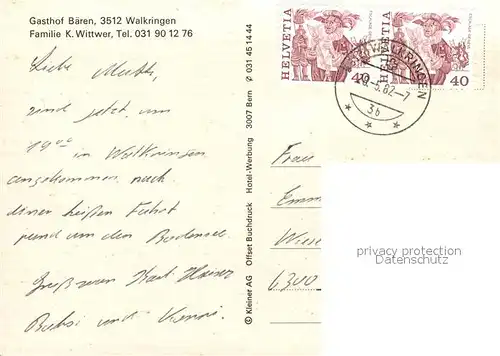 Gasthof Bären, 3512 Walkringen
Familie K. Wittwer, Tel. 031 90 12 76
Liebe
sind jetzt um
19⁰⁰ in Walkringen
angekommen nach
einer heißen Fahrt
rund um den Bodensee.
Grüße von Karl Heinz
und
© Kleiner AG Offset Buchdruck Hotel-Werbung 3007 Bern ✆ 031 45 14 44
HELVETIA
40
HELVETIA
40
WALKRINGEN
5.82-7
3b
Frau
6300
privacy protection
Datenschutz